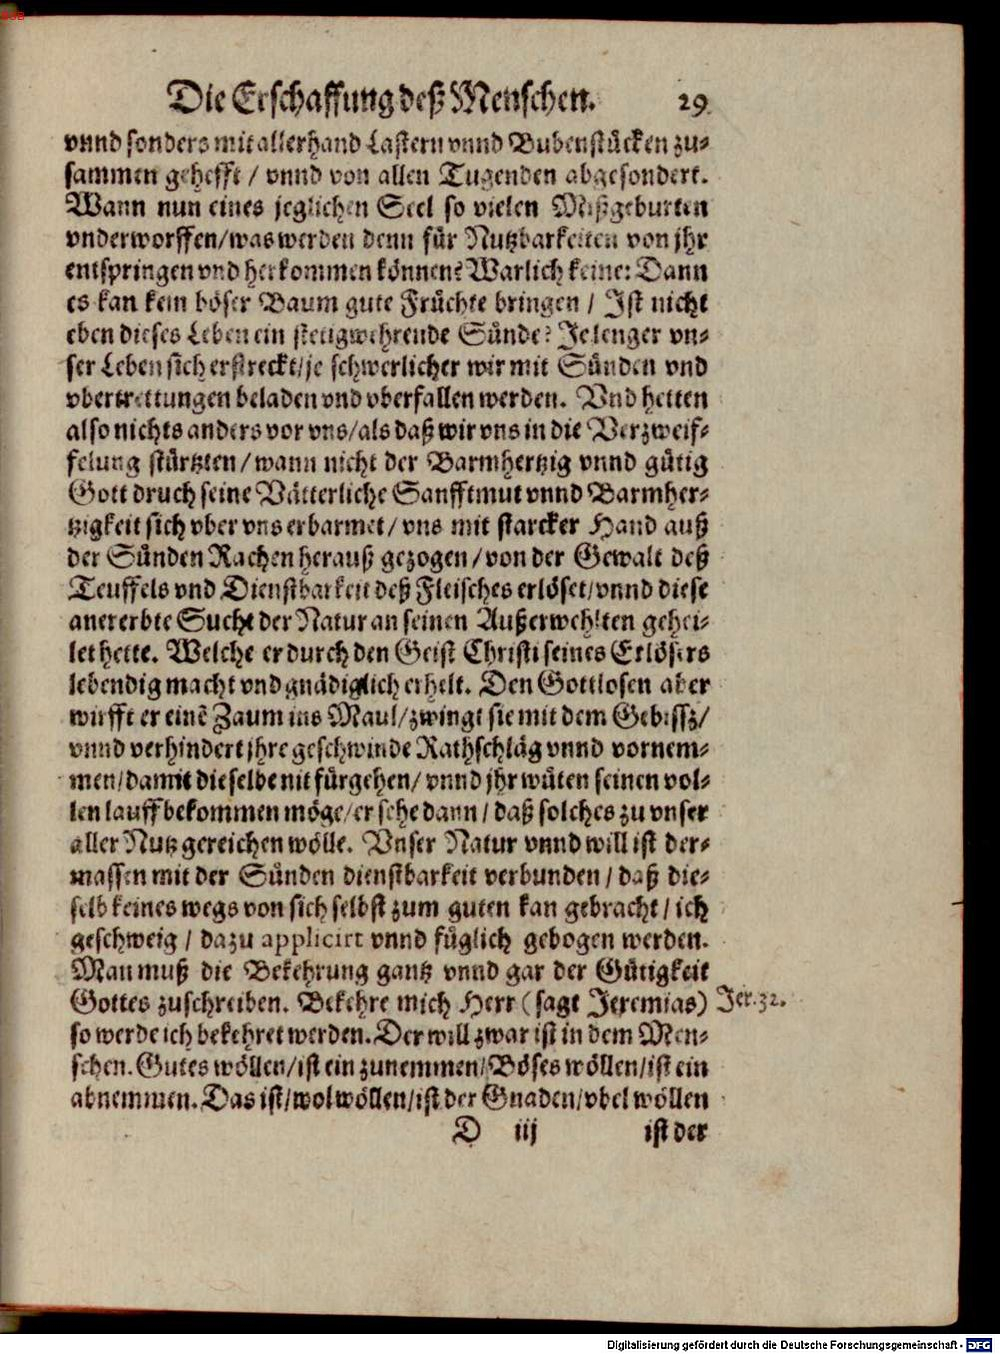 Die Erschaffung deß Menschen. 29
vnnd sonders mit allerhand Lastern vnnd Bubenstücken zu-
sammen gehefft / vnnd von allen Tugenden abgesondert.
Wann nun eines jeglichen Seel so vielen Mißgeburten
vnderworffen/was werden denn für Nutzbarkeiten von jhr
entspringen vnd herkommen können? Warlich keine: Dann
es kan kein böser Baum gute Früchte bringen / Ist nicht
eben dieses Leben ein stetigwehrende Sünde? Je lenger vn-
ser Leben sich erstreckt/je schwerlicher wir mit Sünden vnd
vbertrettungen beladen vnd vberfallen werden. Vnd hetten
also nichts anders vor vns/als daß wir vns in die Verzweif-
felung stürtzten/wann nicht der Barmhertzig vnnd gütig
Gott druch seine Vätterliche Sanfftmut vnnd Barmher-
tzigkeit sich vber vns erbarmet/ vns mit starcker Hand auß
der Sünden Rachen herauß gezogen/von der Gewalt deß
Teuffels vnd Dienstbarkeit deß Fleisches erlöset/vnnd diese
anererbte Sucht der Natur an seinen Außerwehlten gehei-
let hette. Welche er durch den Geist Christi seines Erlösers
lebendig macht vnd gnädiglich erhelt. Den Gottlosen aber
wirfft er einẽ Zaum ins Maul/zwingt sie mit dem Gebissz/
vnnd verhindert jhre geschwinde Rathschläg vnnd vornem-
men/damit dieselbe nit fürgehen/ vnnd jhr wüten seinen vol-
len lauff bekommen möge/er sehe dann / daß solches zu vnser
aller Nutz gereichen wölle. Vnser Natur vnnd will ist der-
massen mit der Sünden dienstbarkeit verbunden / daß die-
selb keines wegs von sich selbst zum guten kan gebracht / ich
geschweig / dazu applicirt vnnd füglich gebogen werden.
Man muß die Bekehrung gantz vnnd gar der Gütigkeit
Gottes zuschreiben. Bekehre mich Herr (sagt Jeremias) Jer. 32.
so werde ich bekehret werden. Der will zwar ist in dem Men-
schen. Gutes wöllen/ist ein zunemmen/Böses wöllen/ist ein
abnemmen. Das ist/wol wöllen/ist der Gnaden/vbel wöllen
D iij ist der
Digitalisierung gefördert durch die Deutsche Forschungsgemeinschaft - DFG